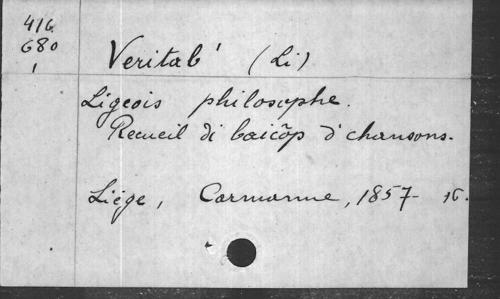 416
680
1
Veritab' (Li)
Ligeois philosophe.
Recueil di baicôp d'chansons.
Liége, Carmanne, 1857- 16.